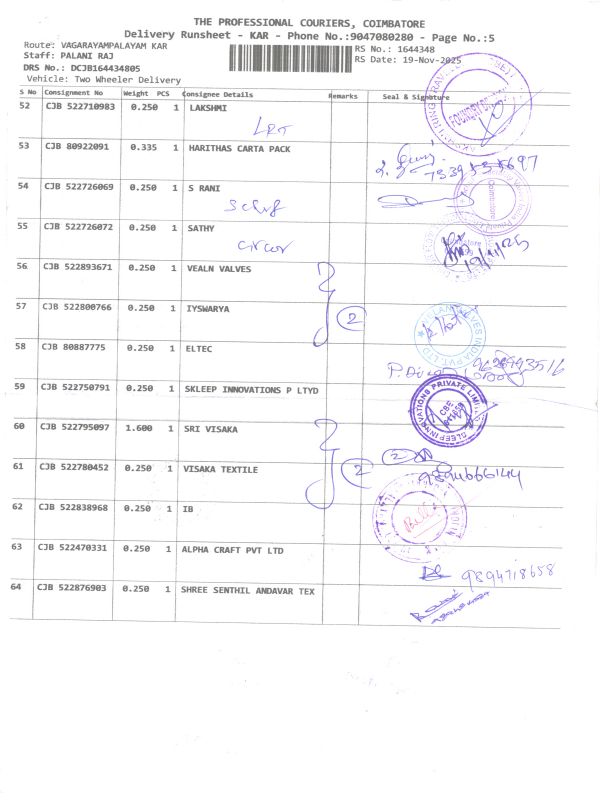 THE PROFESSIONAL COURIERS, COIMBATORE
Delivery Runsheet - KAR - Phone No.:9047080280 - Page No.:5
Route: VAGARAYAMPALAYAM KAR
RS No.: 1644348
Staff: PALANI RAJ
RS Date: 19-Nov-2025
DRS No.: DCJB164434805
Vehicle: Two Wheeler Delivery
S No Consignment No Weight PCS Consignee Details Remarks Seal & Signature
52 CJB 522710983 0.250 1 LAKSHMI
53 CJB 80922091 0.335 1 HARITHAS CARTA PACK
54 CJB 522726069 0.250 1 S RANI
55 CJB 522726072 0.250 1 SATHY
19/11/25
56 CJB 522893671 0.250 1 VEALN VALVES
57 CJB 522800766 0.250 1 IYSWARYA
2
58 CJB 80887775 0.250 1 ELTEC
59 CJB 522750791 0.250 1 SKLEEP INNOVATIONS P LTYD
60 CJB 522795097 1.600 1 SRI VISAKA
2
61 CJB 522780452 0.250 1 VISAKA TEXTILE
2
9894666144
62 CJB 522838968 0.250 1 IB
63 CJB 522470331 0.250 1 ALPHA CRAFT PVT LTD
9894718658
64 CJB 522876903 0.250 1 SHREE SENTHIL ANDAVAR TEX